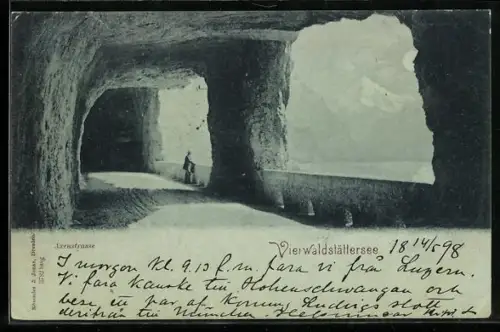 Axenstrasse
Vierwaldstättersee
18 14/5 98
I morgon kl. 9.13 f.m. fara vi från Luzern.
Vi fara kanske till Hohenschwangau och
bese ett par af Konung Ludvigs slott
derifrån till München. Helsningar